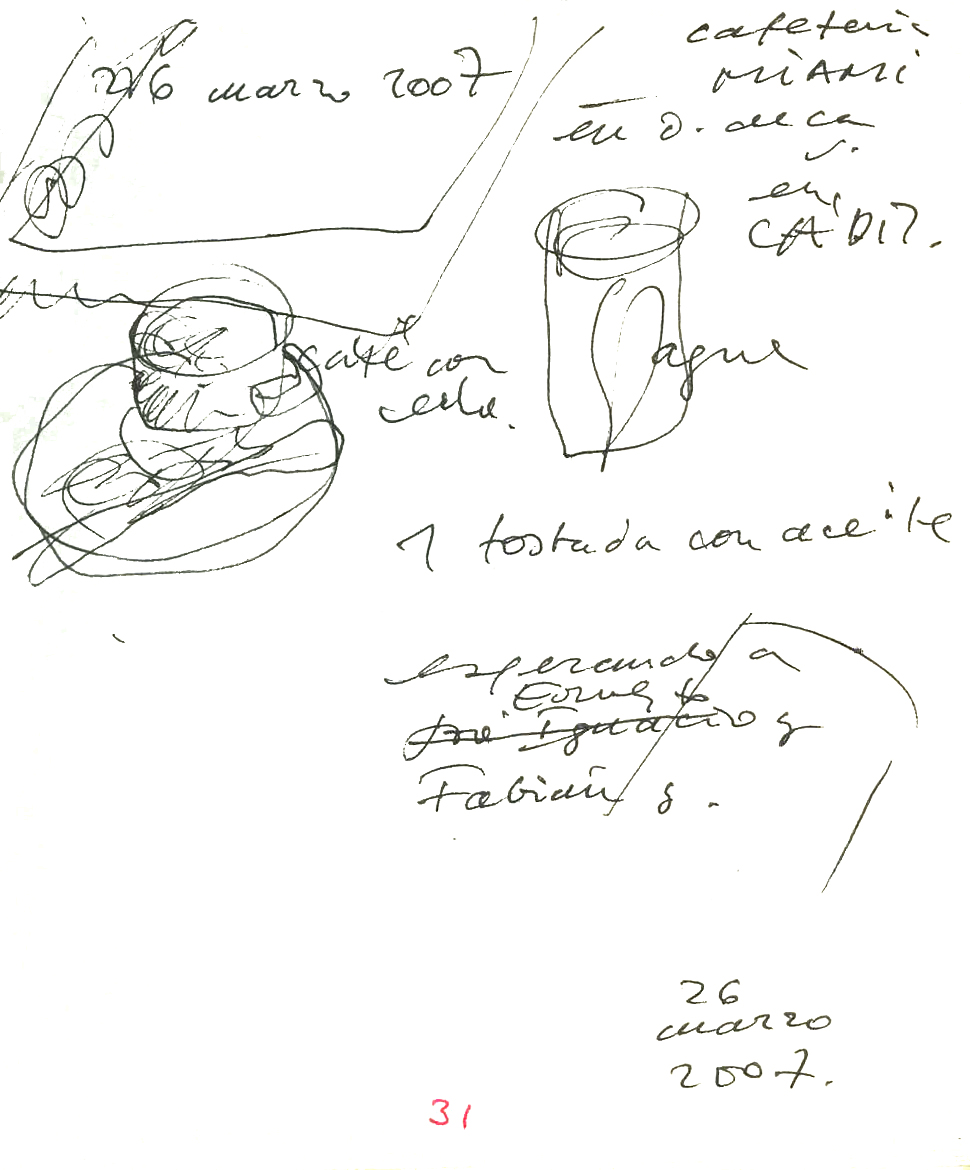 26 marzo 2007
cafetería
MIAMI
en
en
CÁDIZ.
café con
leche.
agua
1 tostada con aceite
esperando a
Ernesto
José Ignacio y
Fabián
26
marzo
2007.
31